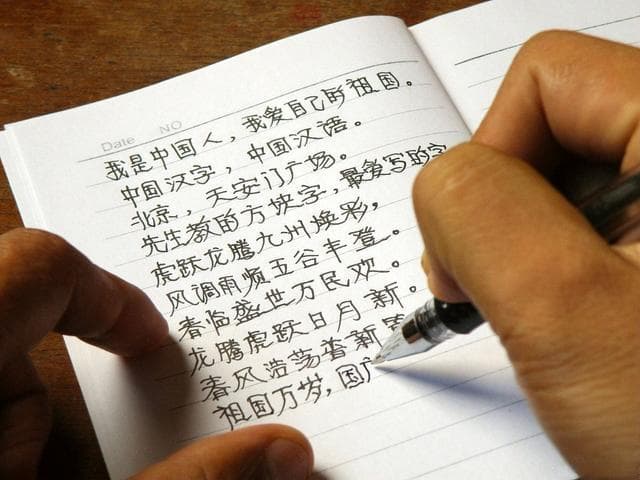 Date NO
我是中国人，我爱自己的祖国。
中国汉字，中国汉语。
北京，天安门广场。
先生教的方块字，最爱写的字
虎跃龙腾九州焕彩，
风调雨顺五谷丰登。
春临盛世万民欢。
龙腾虎跃日月新。
春风浩荡着新
祖国万岁，国